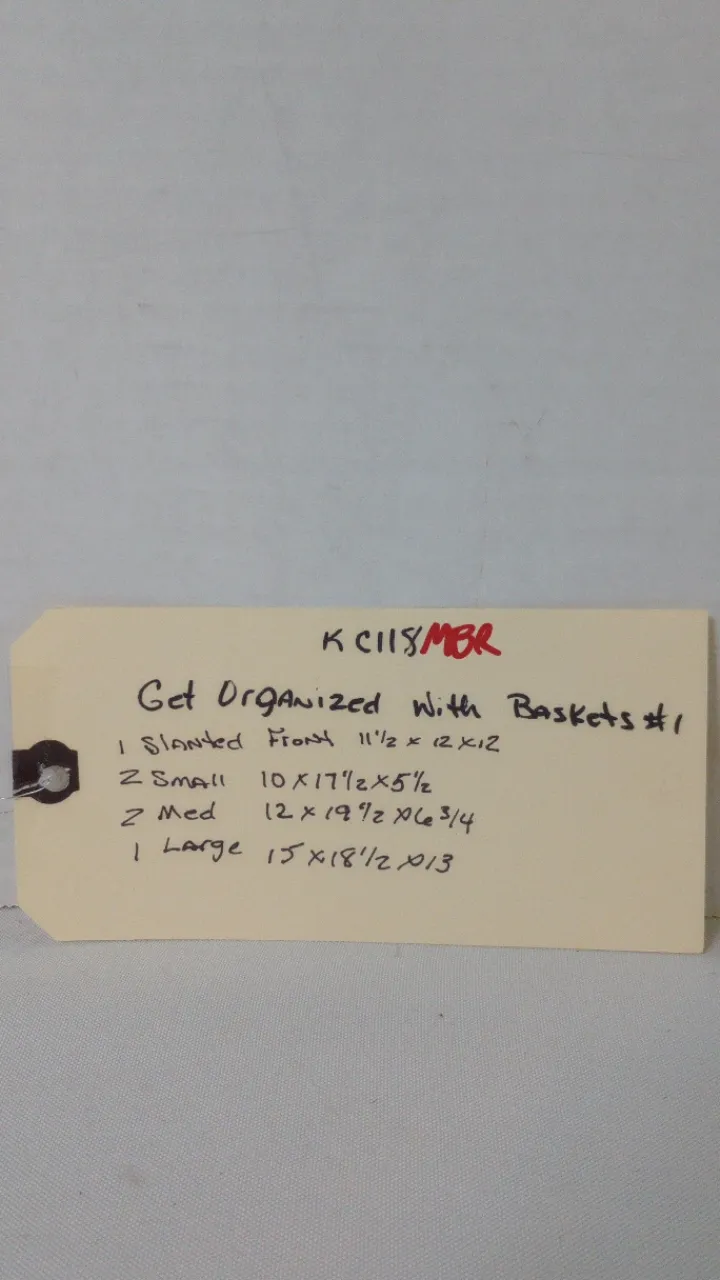 KC118MBR
Get Organized With Baskets #1
1 Slanted Front 11 1/2 x 12 x 12
2 Small 10 x 17 1/2 x 5 1/2
2 Med 12 x 19 1/2 x 6 3/4
1 Large 15 x 18 1/2 x 13